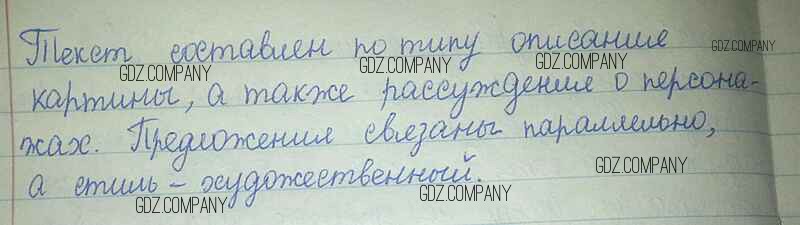 Текст составлен по типу описание
GDZ.COMPANY
GDZ.COMPANY
GDZ.COMPANY
GDZ.COMPANY
картины, а также рассуждение о персона-
жах. Предложения связаны параллельно,
а стиль – художественный.
GDZ.COMPANY
GDZ.COMPANY
GDZ.COMPANY